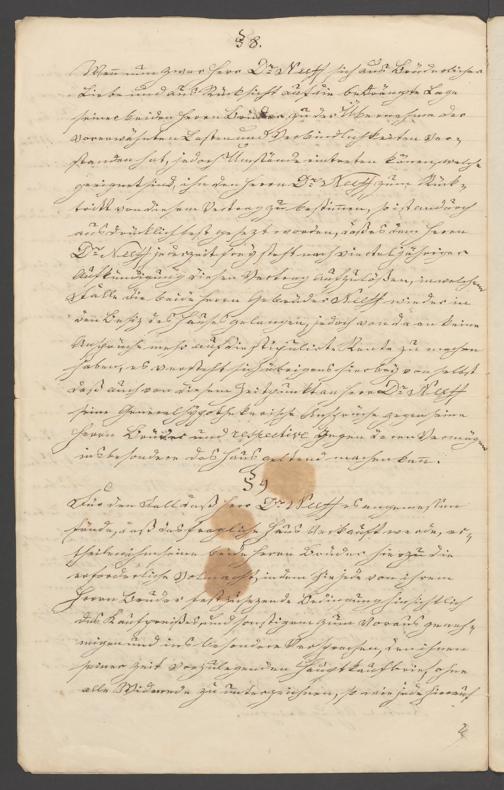 § 8.
Wenn nun zwar Herr Dr. Neeff sich aus Brüderlicher
Liebe und aus Rücksicht auf die bedrängte Lage
seiner beiden Herren Brüder zu der Übernahme der
vorerwähnten Lasten und Verbindlichkeiten ver-
standen hat, jedoch Umstände eintreten können, welche
geeignet sind, ihn den Herrn Dr. Neeff zum Rück-
tritt von diesem Vertrag zu bestimmen, so ist andurch
ausdrücklich fest gesezt worden, daß es dem Herrn
Dr. Neeff jederzeit frey steht nach vierteljähriger
Aufkündigung diesen Vertrag aufzulösen, in welchem
Falle die beide Herren Gebrüder Neeff wieder in
den Besiz des Hauses gelangen, jedoch von da an keine
Ansprüche mehr auf die stipulirte Rente zu machen
haben, es versteht sich übrigens hierbey von selbst
daß auch von diesem Zeitpunkt an Herr Dr. Neeff
seine General hypothekarische Ansprüche gegen seine
Herrn Brüder und respective gegen deren Vermögen
insbesondere das Haus geltend machen kann.
§ 9
Für den Fall daß Herr Dr. Neeff es angemessen
fände, daß das fragliche Haus verkauft werde, er-
theilen ihm seine beide Herrn Brüder hierzu die
erforderliche Vollmacht, indem sie jede von ihrem
Herrn Bruder festzusezende Bedingung hinsichtlich
des Kaufpreißes und sonstigen zum Voraus geneh-
migen und insbesondere versprechen, den ihnen
seiner Zeit vorzulegenden Hauptkaufbrief ohne
alle Widerrede zu unterzeichnen, so wie jede hierauf